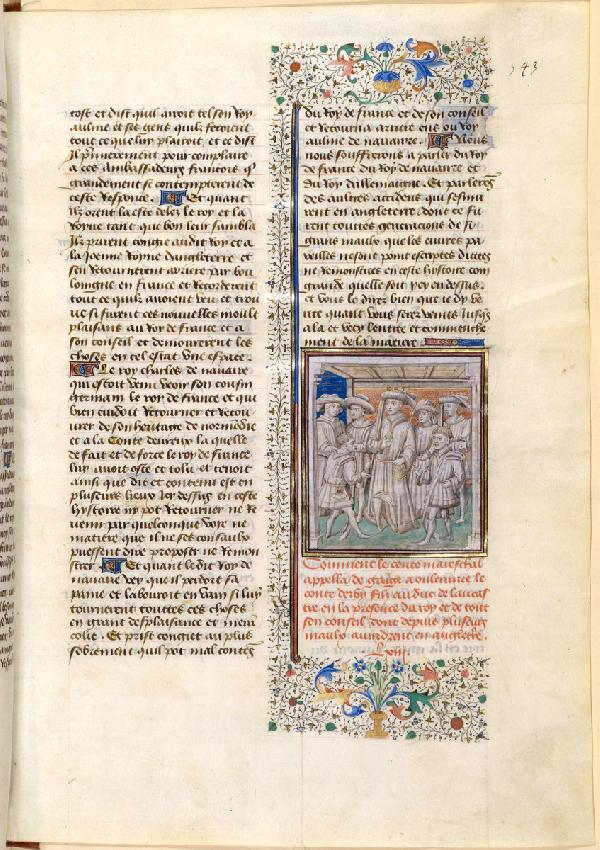 tost et dist quil avoit tel son roy
auline et ses gens quilz feroient
tout ce que luy plairoit et ce dist
il pmierement pour complaire
a ces ambassadeurs francois q
grandement se contempterent de
ceste response. Et quant
ilz orent la este delez le roy et la
royne tant que bon leur sambla
Ilz prirent congie audit roy et a
la Joenne Royne dangleterre et
sen Retournerent arriere par bou
longne en france et Recorderent
tout ce quilz avoient veu et trou
ve si furent ces nouvelles moult
plaisans au Roy de france et a
son conseil et demourerent les
choses en tel estat une espace.
Le roy charles de navarre
qui estoit venu veoir son cousin
germain le roy de france et qui
bien cuidoit Retourner et Retou
rer de son heritage de normedie
et a la Conte devreux la quelle
de fait et de force le roy de france
luy avoit oste et tolu et tenoit
ainsi que dit et contenu est en
pluseurs lieux Icy dessus en ceste
histoire ny pot Retourner ne Re
venir par quelconque voye ne
matiere que il ne ses consaulx
peussent dire proposer ne Remon
strer. Et quant ledit Roy de
navarre vey que il perdoit sa
paine et labouroit en vain si luy
tournerent touttes ces choses
en grant desplaisance et meran
colie. Et prist congiet au plus
sobrement quil pot mal contep
du Roy de france et de son conseil
et Retourna arriere en son Roy
aulme de navarre. Nous
nous soufferrons a parler du roy
de france du Roy de navarre et
du Roy dallemaigne. Et parlerōs
des aultres accidens qui sesmu
rent en angleterre dont ce fu
rent touttes generacions de si
grans maulx que les euures pa
reilles ne sont point escriptes dittes
ne Remonstrees en ceste histoire com
grande quelle soit icy en dessus.
et vous le direz bien que ie dy ve
rite quant vous serez venus Jusqs
a la et vecy lentree et commenche
ment de la matiere
Comment le conte mareschal
appella de gaige a oultrance le
conte derby filz au duc de lancas
tre en la presence du roy et de tout
son conseil dont depuis pluseurs
maulx avindrent en angletre.